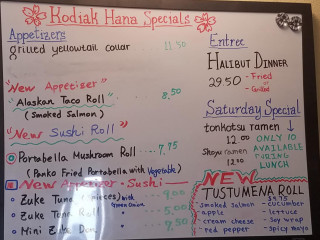 Kodiak Hana Specials
Appetizers
grilled yellowtail collar 11.50
"New Appetiser"
Alaskan Taco Roll 8.50
(Smoked Salmon)
"New Sushi Roll"
Portabella Mushroom Roll 7.75
(Panko Fried Portabella with Vegetable)
New Appetizer - Sushi
Zuke Tuna (pieces) with
Green Onion
Zuke Tuna Roll
Mini Zuke Don
Entree
HALIBUT DINNER
29.50 - Fried
- Grilled
Saturday Special
tonkotsu ramen
12.00
Shoyu ramen
12.00
ONLY 10
AVAILABLE
DURING
LUNCH
NEW
TUSTUMENA ROLL
- smoked salmon - cucumber
- apple - lettuce
- cream cheese - soy wrap
- red pepper - spicy mayo